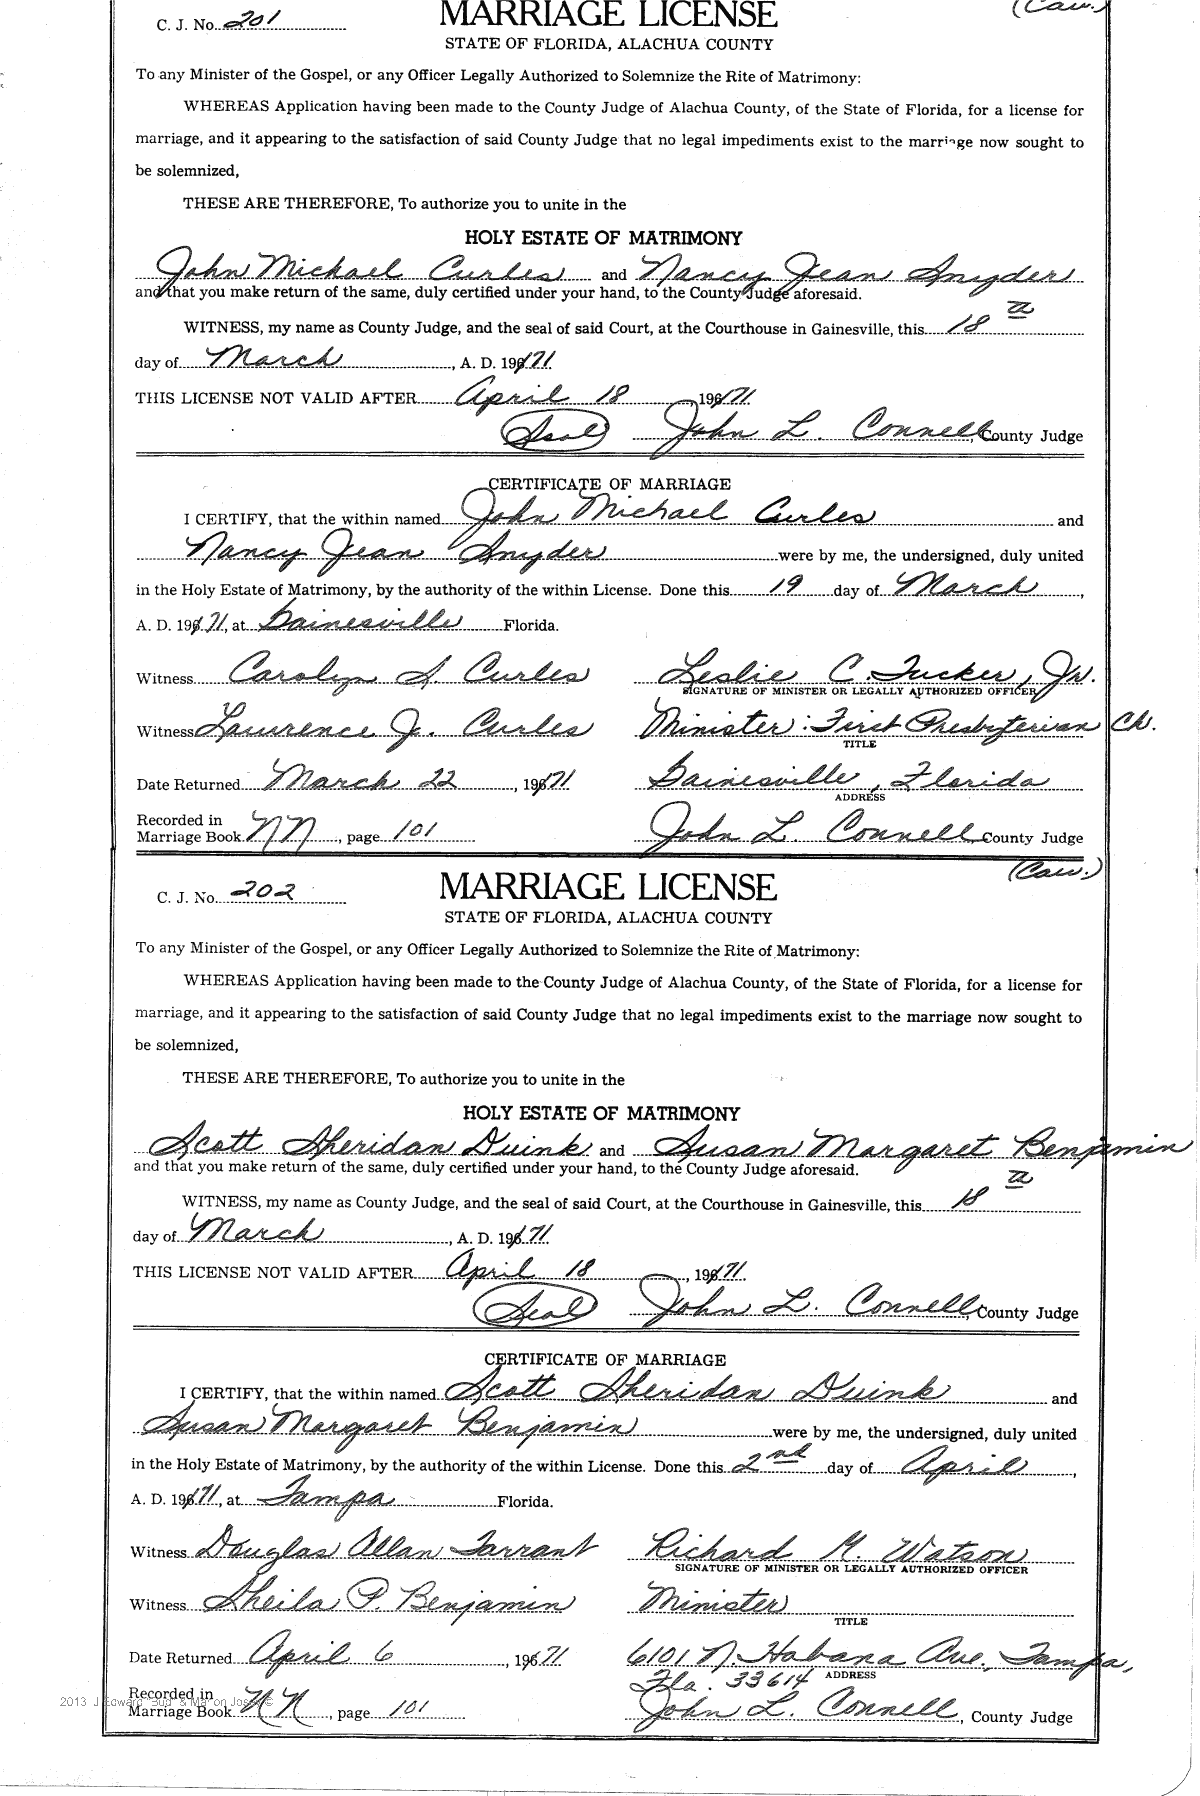 C. J. No. 201
MARRIAGE LICENSE
(Caw.)
STATE OF FLORIDA, ALACHUA COUNTY
To any Minister of the Gospel, or any Officer Legally Authorized to Solemnize the Rite of Matrimony:
WHEREAS Application having been made to the County Judge of Alachua County, of the State of Florida, for a license for
marriage, and it appearing to the satisfaction of said County Judge that no legal impediments exist to the marriage now sought to
be solemnized,
THESE ARE THEREFORE, To authorize you to unite in the
HOLY ESTATE OF MATRIMONY
John Michael Curles and Nancy Jean Snyder
and that you make return of the same, duly certified under your hand, to the County Judge aforesaid.
WITNESS, my name as County Judge, and the seal of said Court, at the Courthouse in Gainesville, this 18
day of March, A. D. 1971.
THIS LICENSE NOT VALID AFTER April 18, 1971
(Seal) John L. Connell, County Judge
CERTIFICATE OF MARRIAGE
I CERTIFY, that the within named John Michael Curles and
Nancy Jean Snyder were by me, the undersigned, duly united
in the Holy Estate of Matrimony, by the authority of the within License. Done this 19 day of March,
A. D. 1971, at Gainesville Florida.
Witness Carolyn S. Curles Leslie C. Tucker, Jr.
SIGNATURE OF MINISTER OR LEGALLY AUTHORIZED OFFICER
Witness Lawrence J. Curles Minister: First Presbyterian Ch.
TITLE
Date Returned March 22, 1971 Gainesville, Florida
ADDRESS
Recorded in
Marriage Book NN, page 101 John L. Connell County Judge
(Caw.)
C. J. No. 202
MARRIAGE LICENSE
STATE OF FLORIDA, ALACHUA COUNTY
To any Minister of the Gospel, or any Officer Legally Authorized to Solemnize the Rite of Matrimony:
WHEREAS Application having been made to the County Judge of Alachua County, of the State of Florida, for a license for
marriage, and it appearing to the satisfaction of said County Judge that no legal impediments exist to the marriage now sought to
be solemnized,
THESE ARE THEREFORE, To authorize you to unite in the
HOLY ESTATE OF MATRIMONY
Scott Sheridan Duink and Susan Margaret Benjamin
and that you make return of the same, duly certified under your hand, to the County Judge aforesaid.
WITNESS, my name as County Judge, and the seal of said Court, at the Courthouse in Gainesville, this 18
day of March, A. D. 1971.
THIS LICENSE NOT VALID AFTER April 18, 1971.
(Seal) John L. Connell, County Judge
CERTIFICATE OF MARRIAGE
I CERTIFY, that the within named Scott Sheridan Duink and
Susan Margaret Benjamin were by me, the undersigned, duly united
in the Holy Estate of Matrimony, by the authority of the within License. Done this 2nd day of April,
A. D. 1971, at Tampa Florida.
Witness Douglas Allan Tarrant Richard M. Watson
SIGNATURE OF MINISTER OR LEGALLY AUTHORIZED OFFICER
Witness Sheila P. Benjamin Minister
TITLE
Date Returned April 6, 1971 6101 N. Habana Ave., Tampa,
Fla. 33614 ADDRESS
Recorded in
Marriage Book NN, page 101 John L. Connell, County Judge